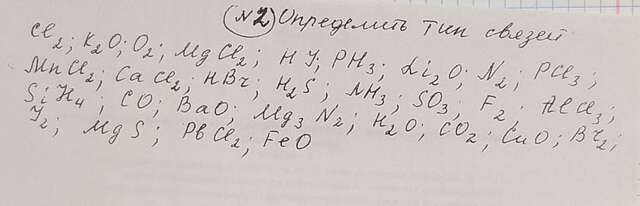 (N2) Определить тип связей
Cl₂; K₂O; O₂; MgCl₂; HJ; PH₃; Li₂O; N₂; PCl₃;
MnCl₂; CaCl₂; HBr; H₂S; NH₃; SO₃; F₂; AlCl₃;
SiH₄; CO; BaO; Mg₃N₂; H₂O; CO₂; CuO; Br₂;
J₂; MgS; PbCl₂; FeO